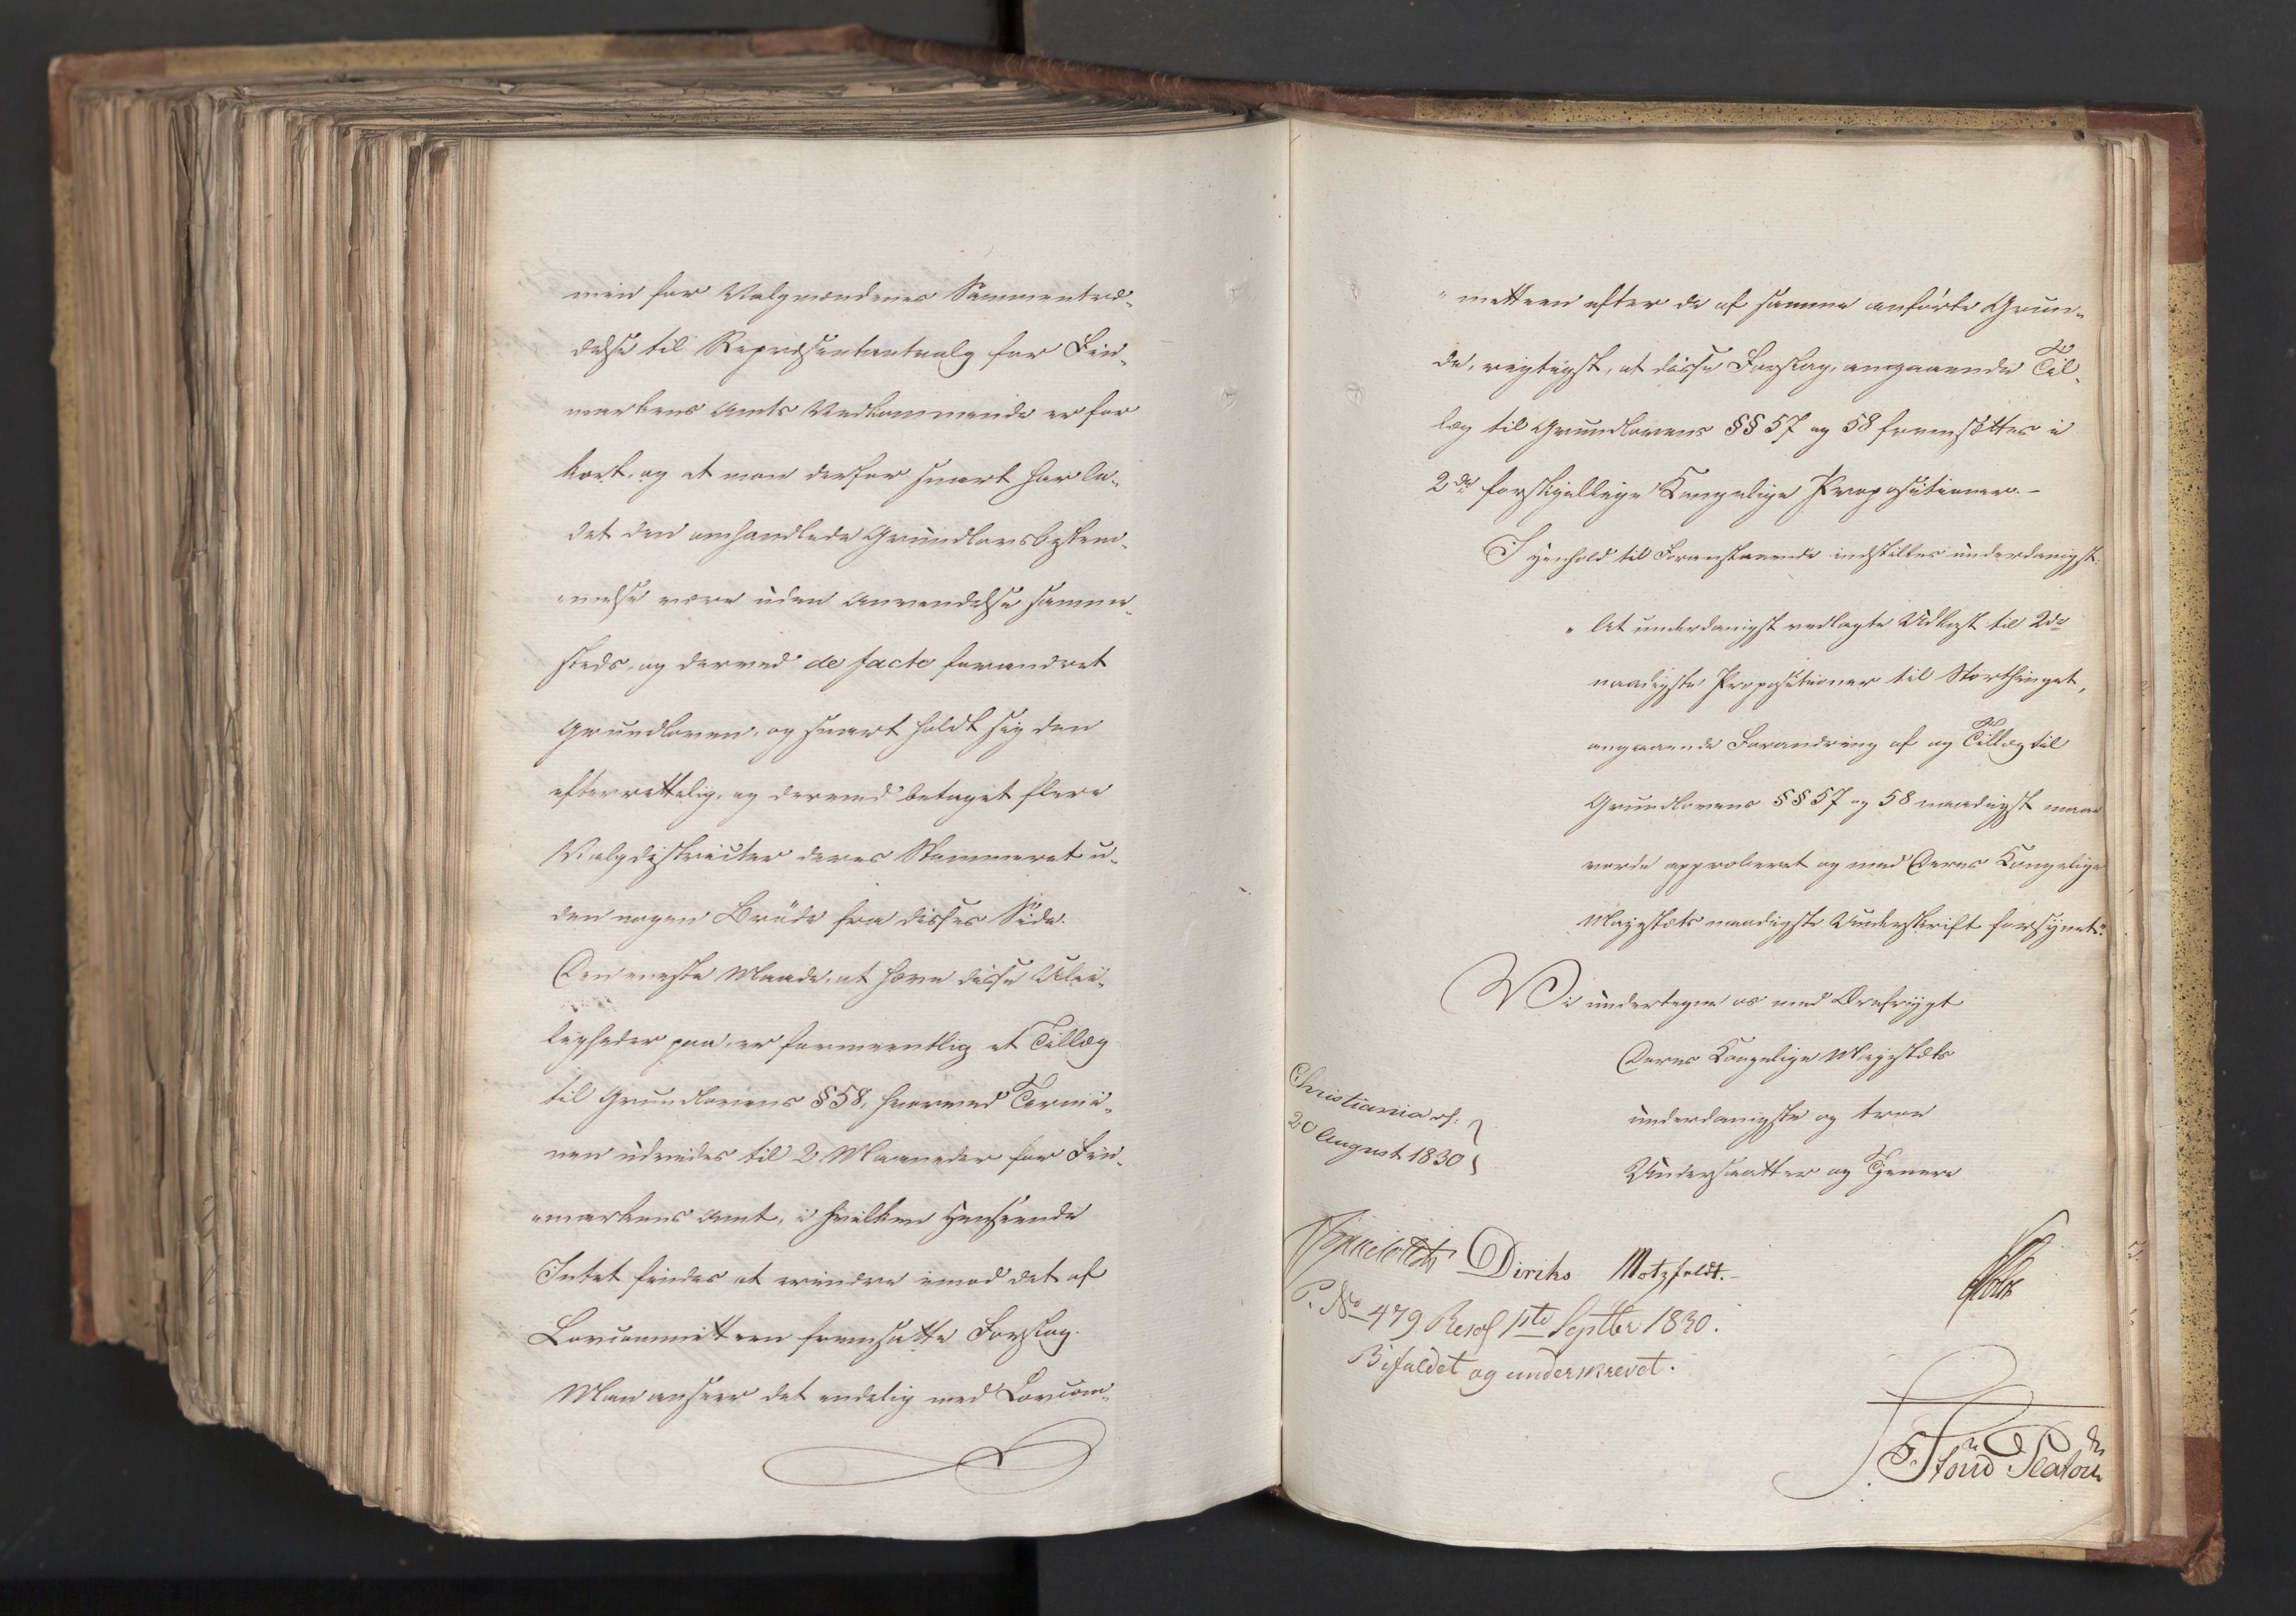 min for Valgmændenes Sammentræ-
delse til Repræsentantvalg for Fin-
markens Amts Vedkommende er for
kort, og at man derfor snart har la-
det den omhandlede Grundlovsbestem-
melse være uden Anvendelse samme-
steds, og derved de facto forandret
Grundloven, og snart holdt sig den
efterrettelig, og derved betaget flere
Valgdistricter deres Stemmeret u-
den nogen Bröde fra disses Side.
Den eneste Maade, at hæve disse Ulei-
ligheder paa, er formeentlig et Tillæg
til Grundlovens § 58, hvorved Termi-
nen udvides til 2 Maaneder for Fin-
markens Amt, i hvilken Henseende
Intet findes at erindre imod det af
Lovcommitteen fremsatte Forslag.
Man anseer det endelig med Lovcom-
"mitteen efter de af samme anförte Grun-
de, rigtigst, at disse Forslag, angaaende Til-
læg til Grundlovens §§ 57 og 58 fremsættes i
2de forskjellige Kongelige Propositioner.-
I Henhold til Foranstaaende indstilles underdanigst:
"At underdanigst vedlagte Udkast til 2de
naadigste Propositioner til Storthinget,
angaaende Forandring af og Tillæg til
Grundlovens §§ 57 og 58 naadigst maae
vorde approberet og med Deres Kongelige
Majestæts naadigste Underskrift forsynet".
Vi undertegne os med Ærefrygt
Deres Kongelige Majestæts
underdanigste og troe
Undersaatter og Tjenere
Christiania
20 August 1830
Diriks Motzfeldt.-
Holst
P. No 479 Resol 1ste Septbr 1830.
Bifaldet og underskrevet.